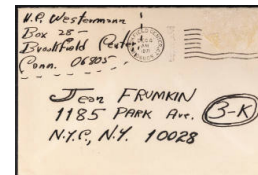 H.C. Westermann
Box 28-
Brookfield Center
Conn. 06805
Jean FRUMKIN
1185 PARK Ave.
3-K
N.Y.C., N.Y. 10028